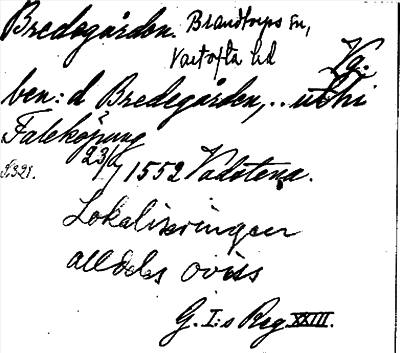 Bredegården. Brandtorps sn,
Vartofta hd
Vg.
ben: d Bredegården,.. uthi
Faleköpung
S. 321. 23/4 1552 Vadstena.
Lokaliseringen
alldeles oviss
G. I:s Reg XXIII.